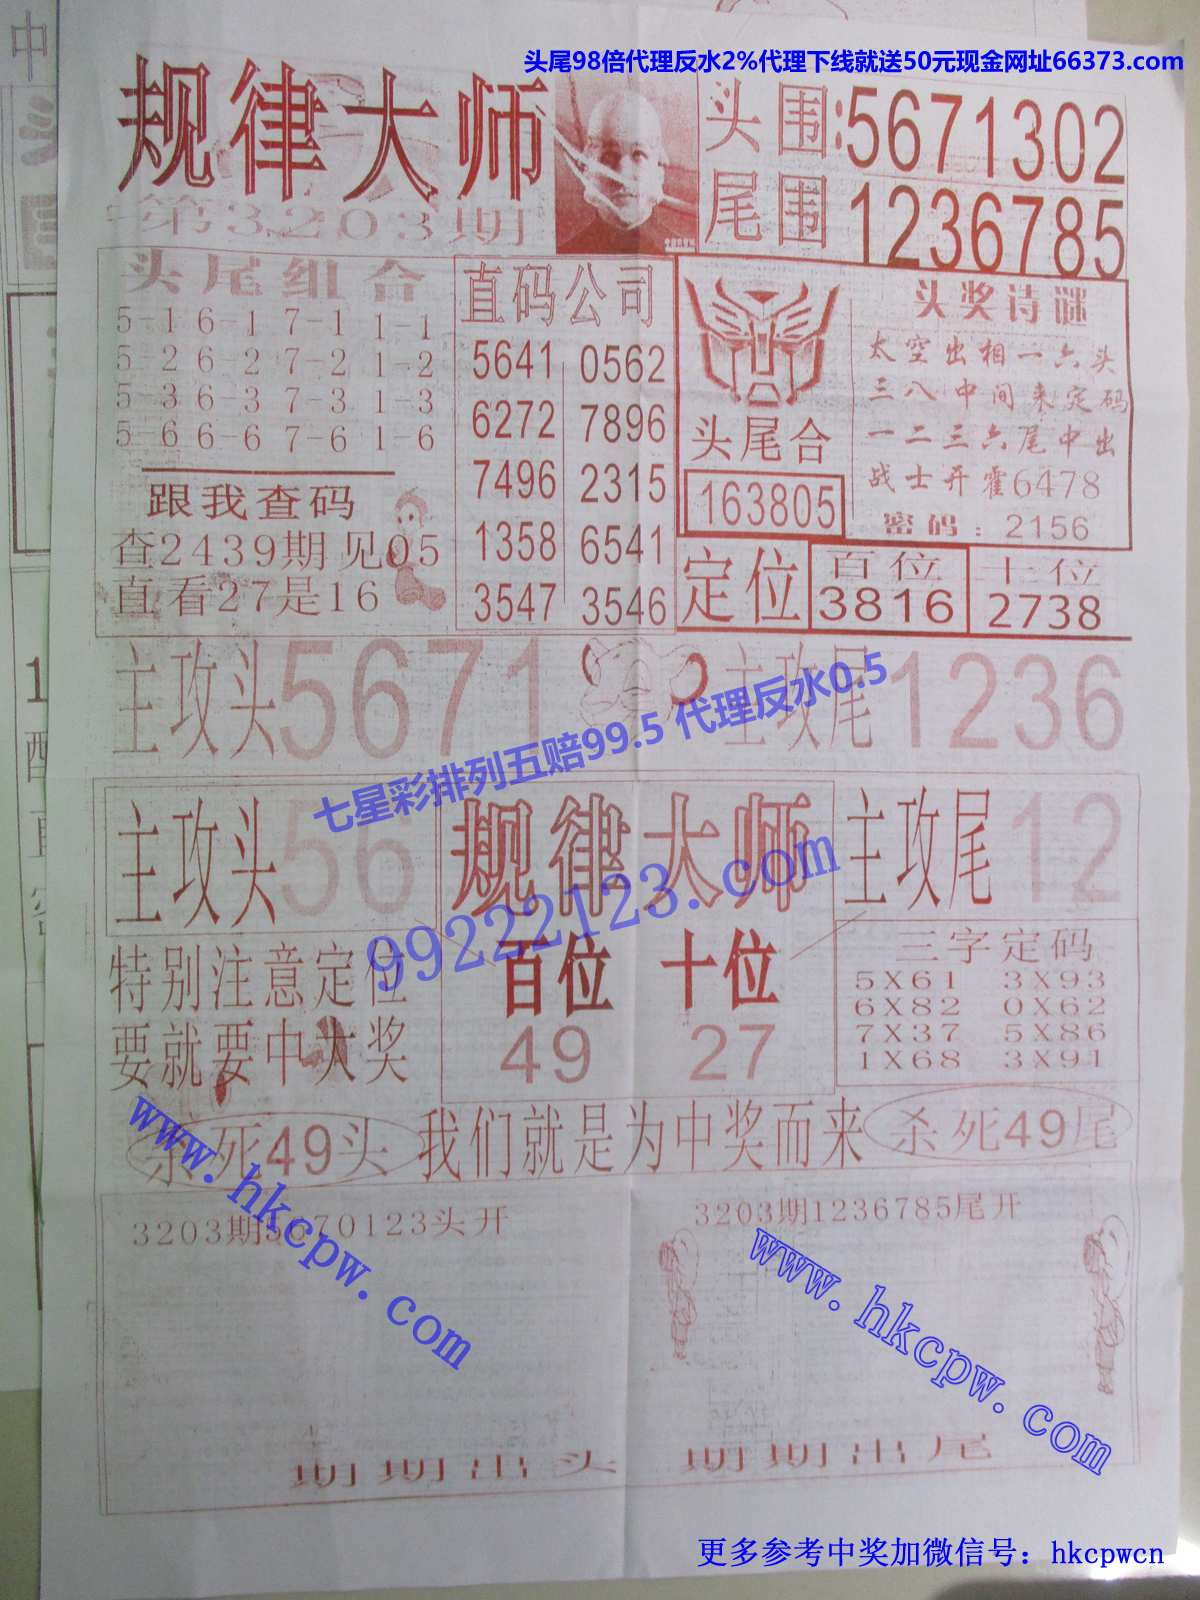 头尾98倍代理反水2%代理下线就送50元现金网址66373.com
规律大师
第3203期
头围:5671302
尾围1236785
头尾组合
5-1 6-1 7-1 1-1
5-2 6-2 7-2 1-2
5-3 6-3 7-3 1-3
5-6 6-6 7-6 1-6
跟我查码
查2439期见05
直看27是16
直码公司
5641 0562
6272 7896
7496 2315
1358 6541
3547 3546
头尾合
163805
头奖诗谜
太空出相一六头
三八中间来定码
一二三六尾中出
战士开霍6478
密码:2156
定位
百位
3816
十位
2738
主攻头5671
主攻尾1236
七星彩排列五赔99.5 代理反水0.5
主攻头56
规律大师
主攻尾12
99222123.com
特别注意定位
要就要中大奖
百位 十位
49 27
三字定码
5X61 3X93
6X82 0X62
7X37 5X86
1X68 3X91
杀死49头
我们就是为中奖而来
杀死49尾
www.hkcpw.com
3203期5670123头开
3203期1236785尾开
www.hkcpw.com
期期出头
期期出尾
更多参考中奖加微信号：hkcpwcn